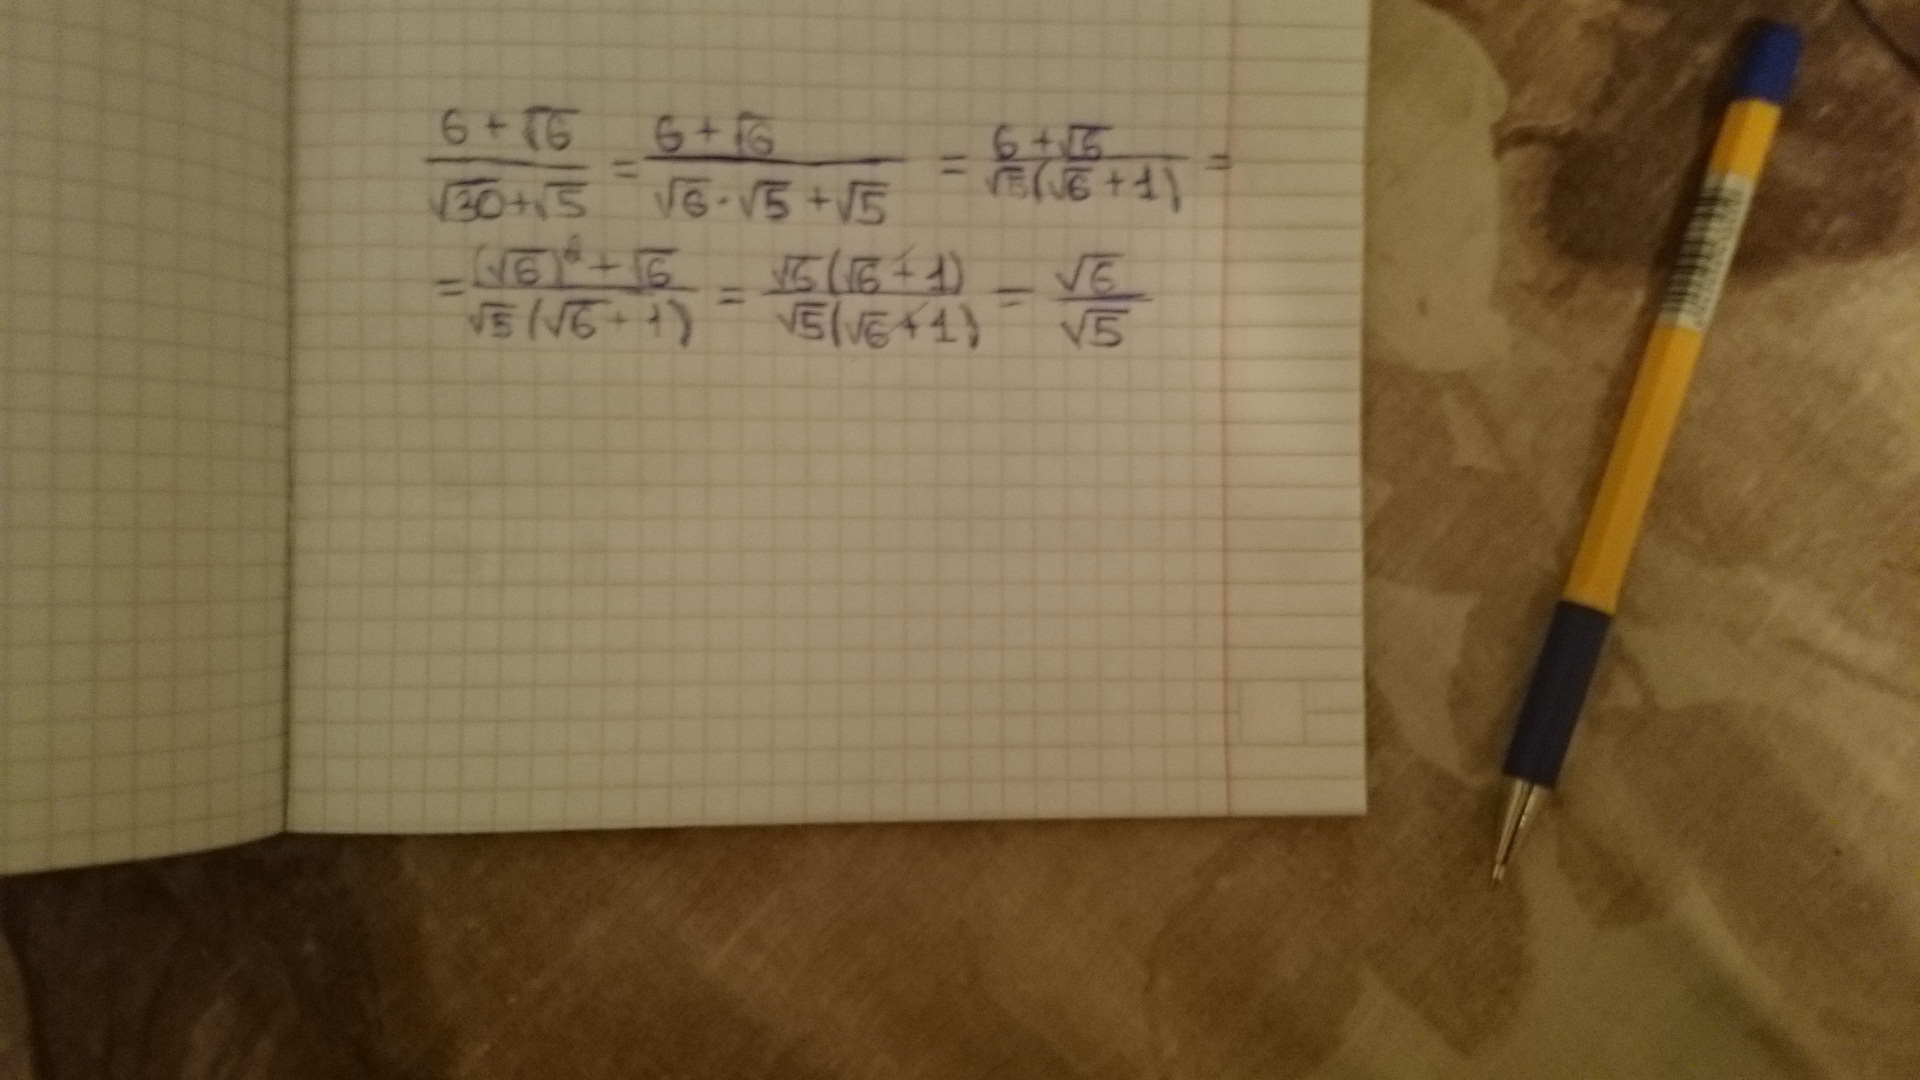 (6 + √6)/(√30 + √5) = (6 + √6)/(√6 · √5 + √5) = (6 + √6)/(√5(√6 + 1)) =
= ((√6)² + √6)/(√5(√6 + 1)) = (√6(√6 + 1))/(√5(√6 + 1)) = √6/√5